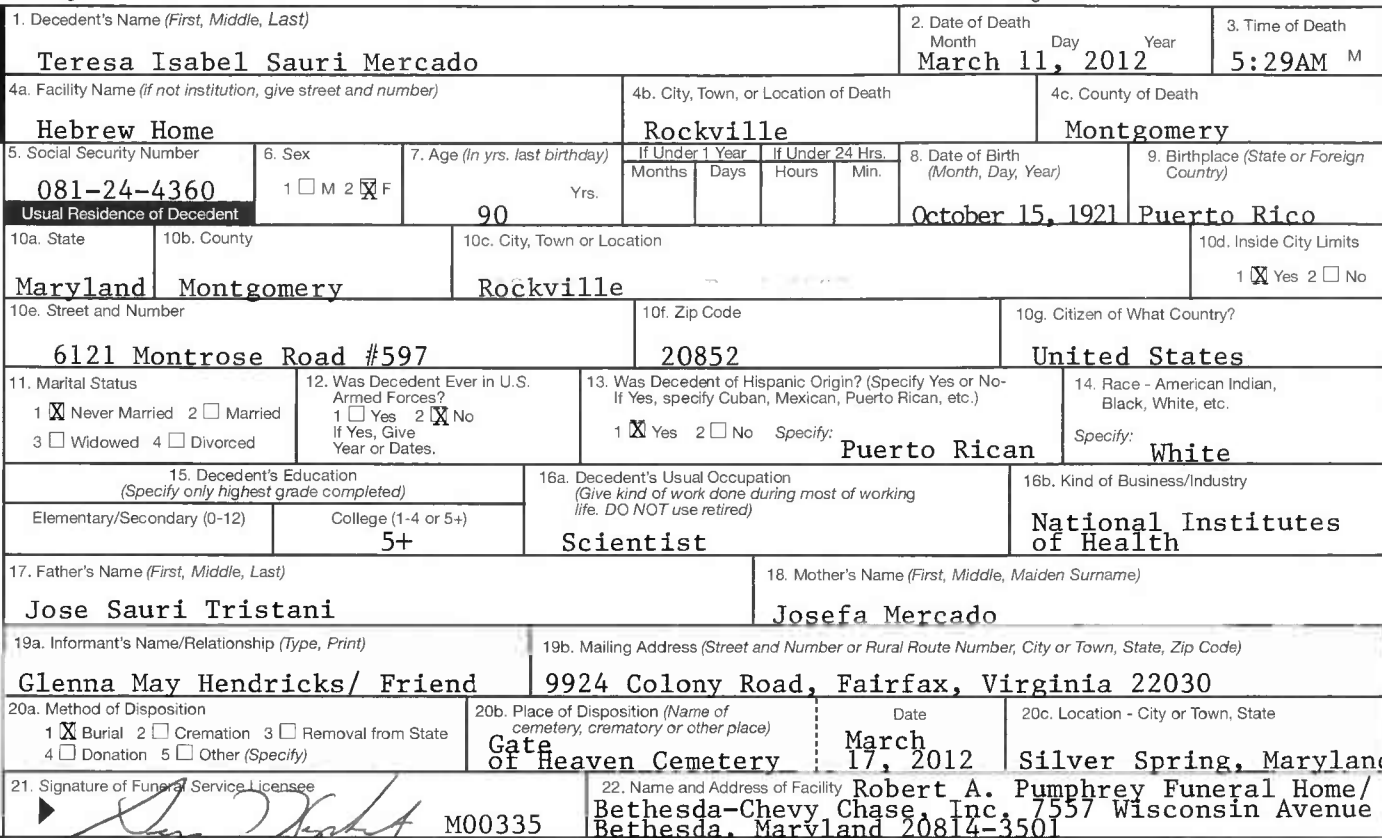 1. Decedent's Name (First, Middle, Last)
Teresa Isabel Sauri Mercado
2. Date of Death
Month Day Year
March 11, 2012
3. Time of Death
5:29AM M
4a. Facility Name (if not institution, give street and number)
Hebrew Home
4b. City, Town, or Location of Death
Rockville
4c. County of Death
Montgomery
5. Social Security Number
081-24-4360
6. Sex
1 ☐ M 2 ☒ F
7. Age (In yrs. last birthday)
Yrs.
90
If Under 1 Year
Months Days
If Under 24 Hrs.
Hours Min.
8. Date of Birth
(Month, Day, Year)
October 15, 1921
9. Birthplace (State or Foreign
Country)
Puerto Rico
Usual Residence of Decedent
10a. State
Maryland
10b. County
Montgomery
10c. City, Town or Location
Rockville
10d. Inside City Limits
1 ☒ Yes 2 ☐ No
10e. Street and Number
6121 Montrose Road #597
10f. Zip Code
20852
10g. Citizen of What Country?
United States
11. Marital Status
1 ☒ Never Married 2 ☐ Married
3 ☐ Widowed 4 ☐ Divorced
12. Was Decedent Ever in U.S.
Armed Forces?
1 ☐ Yes 2 ☒ No
If Yes, Give
Year or Dates.
13. Was Decedent of Hispanic Origin? (Specify Yes or No-
If Yes, specify Cuban, Mexican, Puerto Rican, etc.)
1 ☒ Yes 2 ☐ No Specify: Puerto Rican
14. Race - American Indian,
Black, White, etc.
Specify: White
15. Decedent's Education
(Specify only highest grade completed)
Elementary/Secondary (0-12)
College (1-4 or 5+)
5+
16a. Decedent's Usual Occupation
(Give kind of work done during most of working
life. DO NOT use retired)
Scientist
16b. Kind of Business/Industry
National Institutes
of Health
17. Father's Name (First, Middle, Last)
Jose Sauri Tristani
18. Mother's Name (First, Middle, Maiden Surname)
Josefa Mercado
19a. Informant's Name/Relationship (Type, Print)
Glenna May Hendricks/ Friend
19b. Mailing Address (Street and Number or Rural Route Number, City or Town, State, Zip Code)
9924 Colony Road, Fairfax, Virginia 22030
20a. Method of Disposition
1 ☒ Burial 2 ☐ Cremation 3 ☐ Removal from State
4 ☐ Donation 5 ☐ Other (Specify)
20b. Place of Disposition (Name of
cemetery, crematory or other place)
Gate
of Heaven Cemetery
Date
March
17, 2012
20c. Location - City or Town, State
Silver Spring, Maryland
21. Signature of Funeral Service Licensee
M00335
22. Name and Address of Facility Robert A. Pumphrey Funeral Home/
Bethesda-Chevy Chase, Inc. 7557 Wisconsin Avenue
Bethesda, Maryland 20814-3501